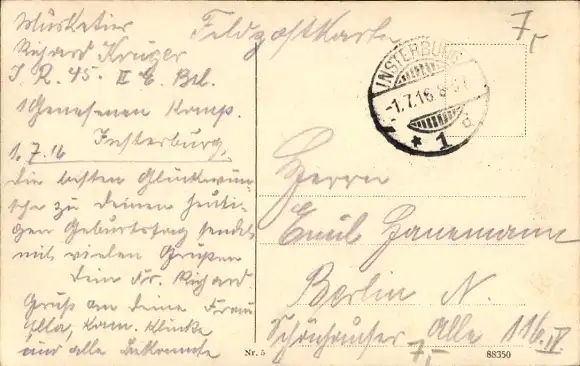 Musketier
Richard Krüger
I. R. 45. II E. Btl.
1 Genesenen Komp.
Insterburg,
1.7.16
Die besten Glückwün-
sche zu deinem heuti-
gen Geburtstag sendet
mit vielen Grüßen
Dein Fr. Richard
Gruß an deine Frau
Ella, Kam. Klinke
und alle Bekannte
Feldpostkarte
7,-
INSTERBURG
-1.7.16
* 1 d
Herrn
Emil Hanemann
Berlin N.
Schönhauser Alle 116 IV.
7,-
Nr. 5
88350